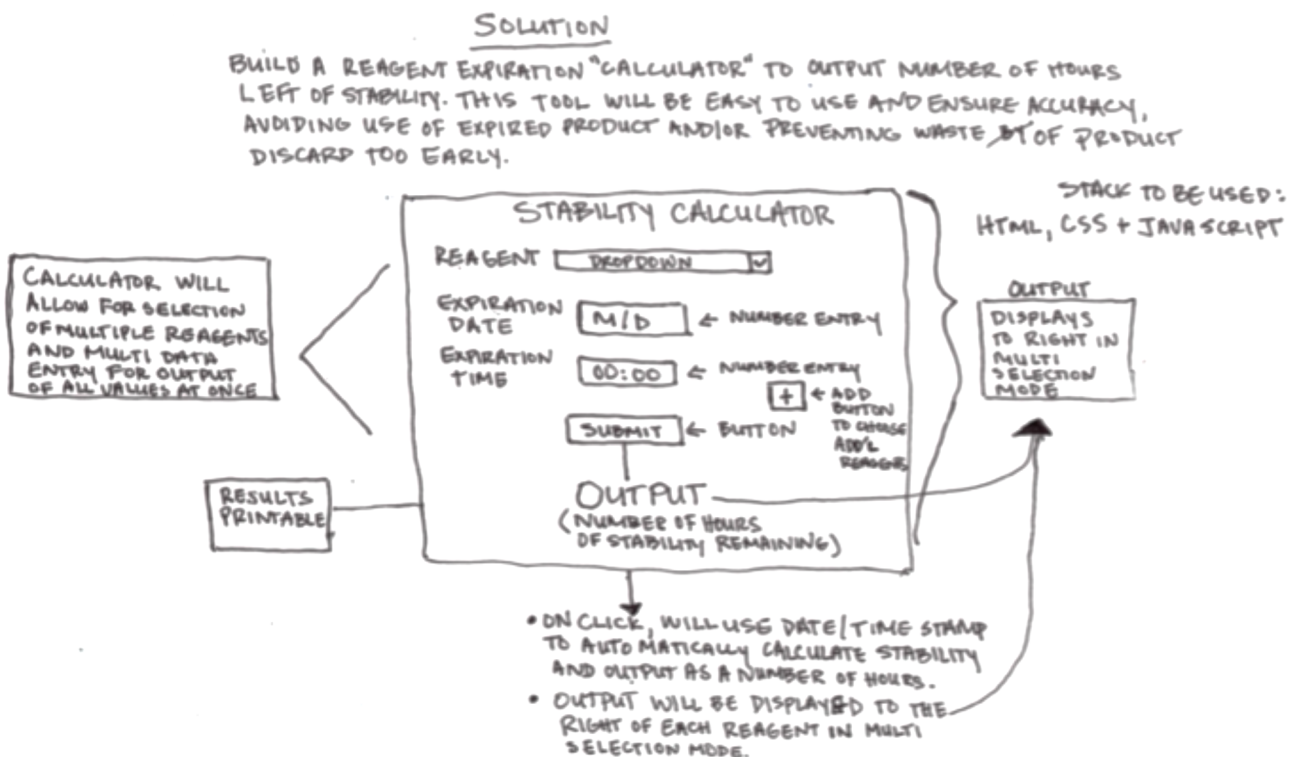 SOLUTION
BUILD A REAGENT EXPIRATION "CALCULATOR" TO OUTPUT NUMBER OF HOURS
LEFT OF STABILITY. THIS TOOL WILL BE EASY TO USE AND ENSURE ACCURACY,
AVOIDING USE OF EXPIRED PRODUCT AND/OR PREVENTING WASTE OF PRODUCT
DISCARD TOO EARLY.
STACK TO BE USED:
HTML, CSS + JAVASCRIPT
CALCULATOR WILL
ALLOW FOR SELECTION
OF MULTIPLE REAGENTS
AND MULTI DATA
ENTRY FOR OUTPUT
OF ALL VALUES AT ONCE
STABILITY CALCULATOR
REAGENT DROPDOWN
EXPIRATION
DATE
M/D ← NUMBER ENTRY
EXPIRATION
TIME
00:00 ← NUMBER ENTRY
+ ← ADD
BUTTON
TO CHOOSE
ADD'L
REAGENTS
SUBMIT ← BUTTON
OUTPUT
(NUMBER OF HOURS
OF STABILITY REMAINING)
OUTPUT
DISPLAYS
TO RIGHT IN
MULTI
SELECTION
MODE
RESULTS
PRINTABLE
• ON CLICK, WILL USE DATE/TIME STAMP
TO AUTOMATICALLY CALCULATE STABILITY
AND OUTPUT AS A NUMBER OF HOURS.
• OUTPUT WILL BE DISPLAYED TO THE
RIGHT OF EACH REAGENT IN MULTI
SELECTION MODE.